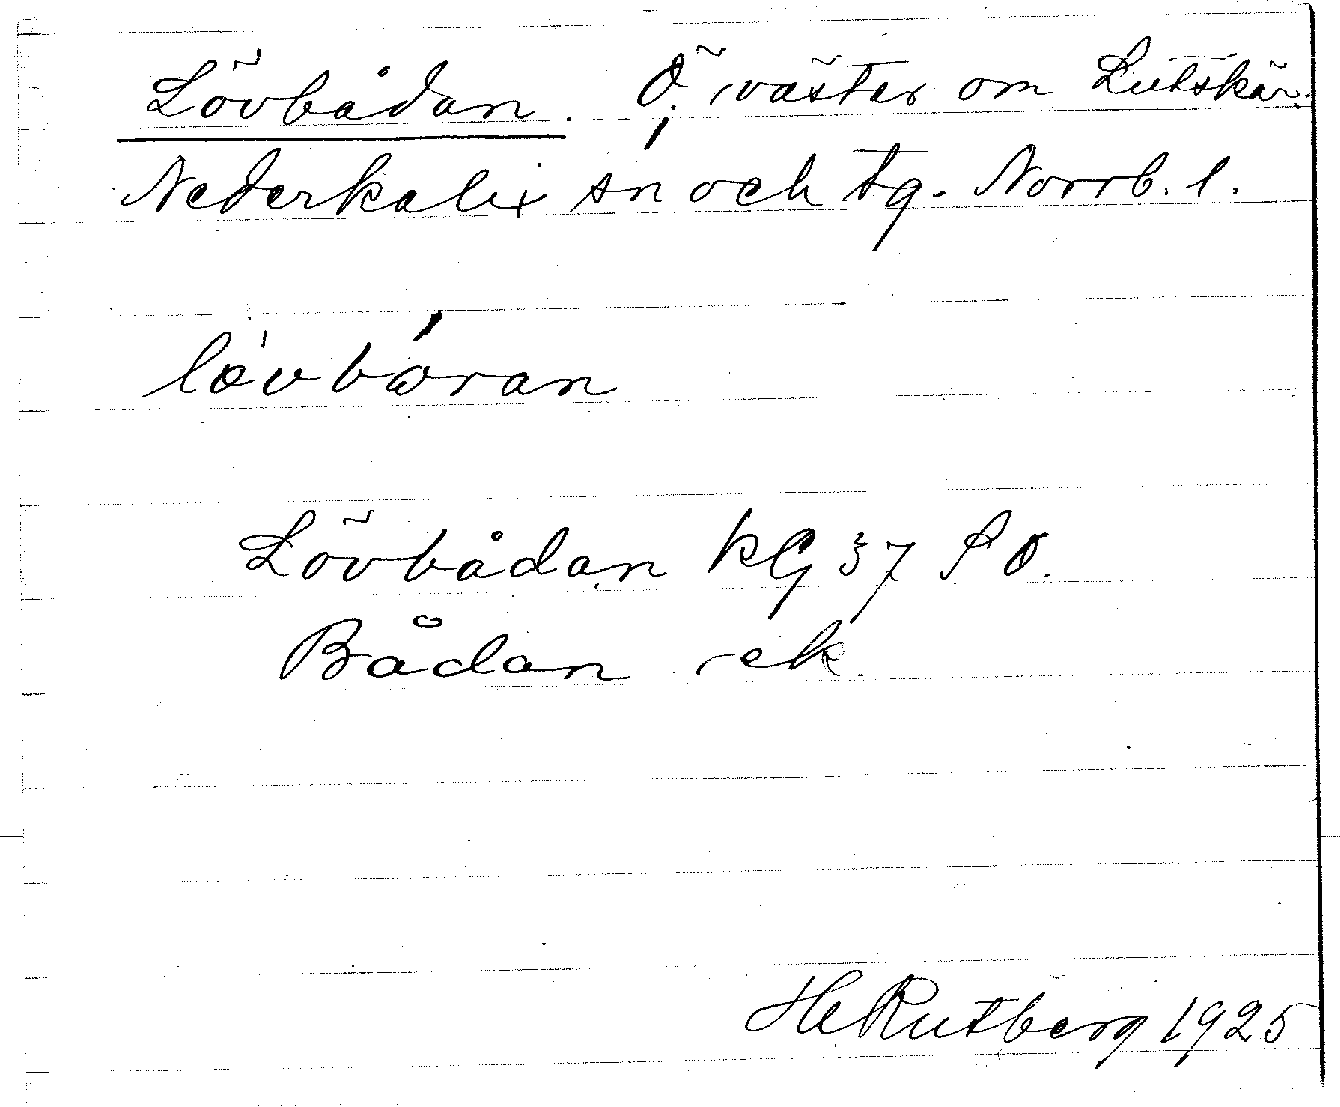 Lövbådan. Ö, väster om Lutskär.
Nederkalix sn och tg. Norrb. l.
lövbåran
Lövbådan kG 37 SO.
Bådan rek
He Rutberg 1925